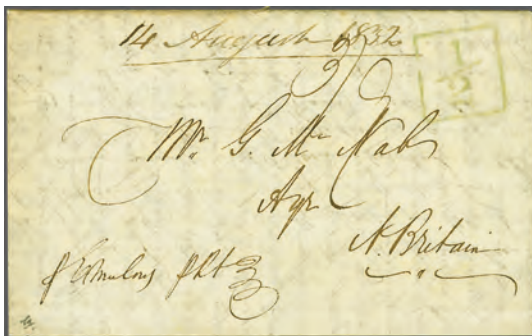 14 August 1832
½
Mr. G. Mc Nab
Ayr
N. Britain
p Emulous pkt